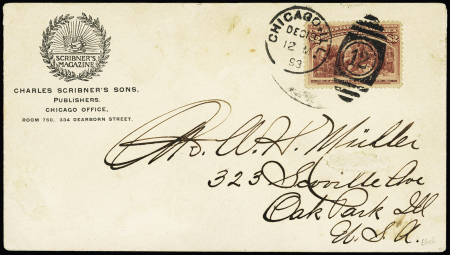 SCRIBNER'S
MAGAZINE
CHARLES SCRIBNER'S SONS,
PUBLISHERS.
CHICAGO OFFICE,
ROOM 750, 334 DEARBORN STREET.
CHICAGO, ILL
DEC
12
93
$2
Mr. W. H. Müller
323 Scoville Ave
Oak Park Ill
U.S.A.